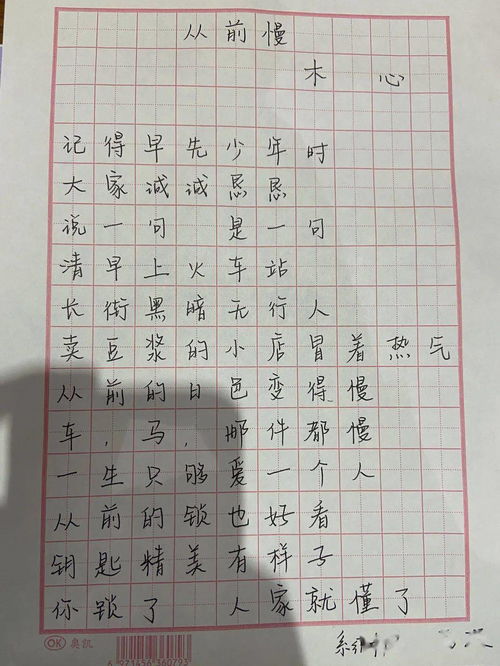 从前慢
木心
记得早先少年时
大家诚诚恳恳
说一句 是一句
清早上火车站
长街黑暗无行人
卖豆浆的小店冒着热气
从前的日色变得慢
车,马,邮件都慢
一生只够爱一个人
从前的锁也好看
钥匙精美有样子
你锁了 人家就懂了
OK 奥凯
6971456360793